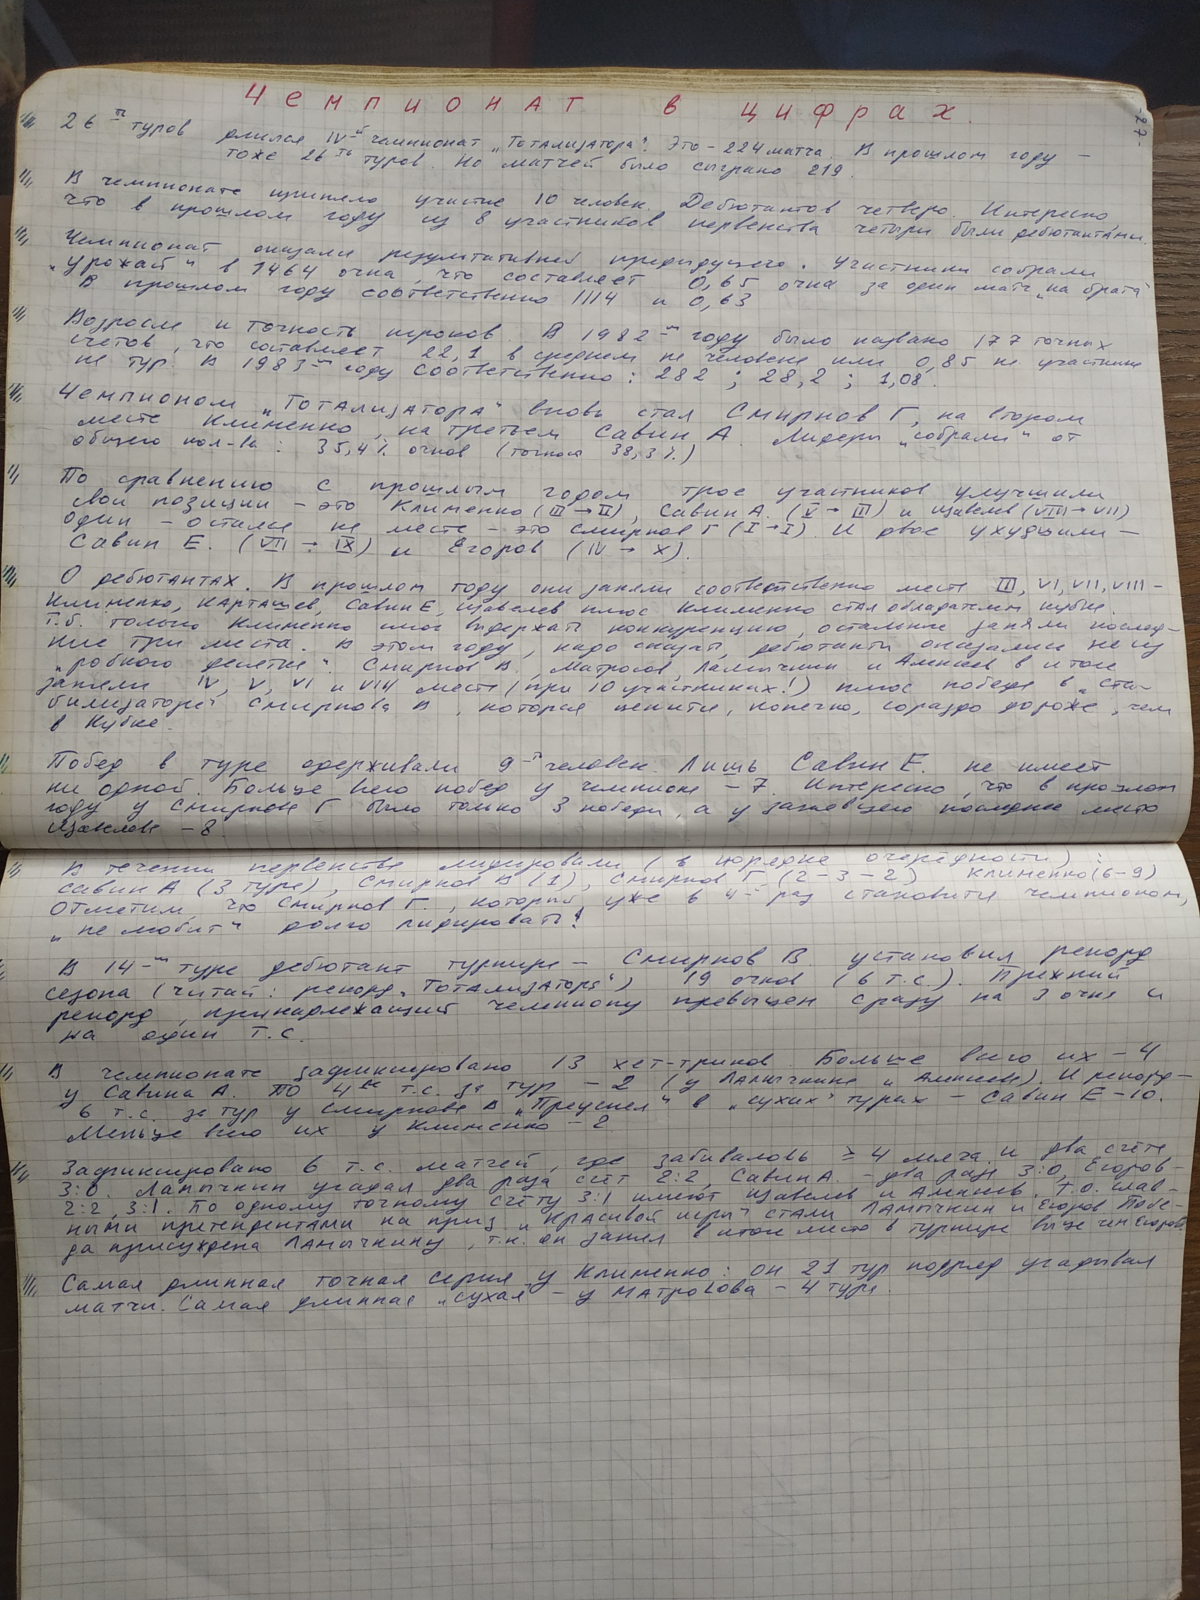 Чемпионат в цифрах.
-27-
26-ть туров длился IV-й чемпионат „Тотализатора". Это - 224 матча. В прошлом году -
тоже 26-ть туров. Но матчей было сыграно 219.
В чемпионате приняло участие 10 человек. Дебютантов четверо. Интересно
что в прошлом году из 8 участников первенства четыре были дебютантами.
Чемпионат оказался результативней предыдущего. Участники собрали
„урожай" в 1464 очка, что составляет 0,65 очка за один матч „на брата"
В прошлом году соответственно 1114 и 0,63
Возросла и точность игроков. В 1982-м году было названо 177 точных
счетов, что составляет 22,1 в среднем на человека или 0,85 на участника
на тур. В 1983-м году соответственно: 282; 28,2; 1,08.
Чемпионом „Тотализатора" вновь стал Смирнов Г, на втором
месте Клименко, на третьем Савин А. Лидеры „собрали" от
общего кол-ва: 35,4% очков (точных 38,3%)
По сравнению с прошлым годом трое участников улучшили
свои позиции - это Клименко (III → II), Савин А. (V → III) и Щавелев (VIII → VII)
один - остался на месте - это Смирнов Г (I → I) И двое ухудшили -
Савин Е. (VII → IX) и Егоров (IV → X).
О дебютантах. В прошлом году они заняли соответственно места III, VI, VII, VIII -
Клименко, Карташев, Савин Е, Щавелев плюс Клименко стал обладателем кубка.
Т.о. только Клименко смог выдержать конкуренцию, остальные заняли послед-
ние три места. В этом году, надо сказать, дебютанты оказались не из
„робкого десятка". Смирнов В, Матросов, Лапычкин и Аникеев в итоге
заняли IV, V, VI и VIII места (при 10 участниках!) плюс победа в „Ста-
билизаторе" Смирнова В, которая ценится, конечно, гораздо дороже, чем
в Кубке.
Побед в туре одерживали 9-ть человек. Лишь Савин Е. не имеет
ни одной. Больше всего побед у чемпиона - 7. Интересно, что в прошлом
году у Смирнова Г было только 3 победы, а у занявшего последнее место
Щавелева - 8.
В течении первенства лидировали (в порядке очерёдности):
Савин А (3 тура), Смирнов В (1), Смирнов Г (2-3-2) Клименко (6-9)
Отметим, что Смирнов Г., который уже в 4-й раз становится чемпионом,
„не любит" долго лидировать!
В 14-м туре дебютант турнира - Смирнов В. установил рекорд
сезона (читай: рекорд „Тотализатора") 19 очков (6 т.с). Прежний
рекорд, принадлежащий чемпиону превышен сразу на 3 очка и
на один т.с.
В чемпионате зафиксировано 13 хет-триков Больше всего их - 4
у Савина А. По 4 т.с. за тур - 2 (у Лапычкина и Аникеева). И рекорд -
6 т.с. за тур у Смирнова В „Преуспел" в „сухих" турах - Савин Е - 10.
Меньше всего их у Клименко - 2
Зафиксировано 6 т.с. матчей, где забивалось ≥ 4 мяча и два счёта
3:0. Лапычкин угадал два раза счёт 2:2, Савин А. - два раза 3:0, Егоров -
2:2, 3:1. По одному точному счёту 3:1 имеют Щавелев и Аникеев. Т.о. глав-
ными претендентами на приз „Красивой игры" стали Лапычкин и Егоров Побе-
да присуждена Лапычкину, т.к. он занял в итоге место в турнире выше чем Егоров.
Самая длинная точная серия у Клименко: он 21 тур подряд угадывал
матчи. Самая длинная „сухая" - у Матросова - 4 тура.